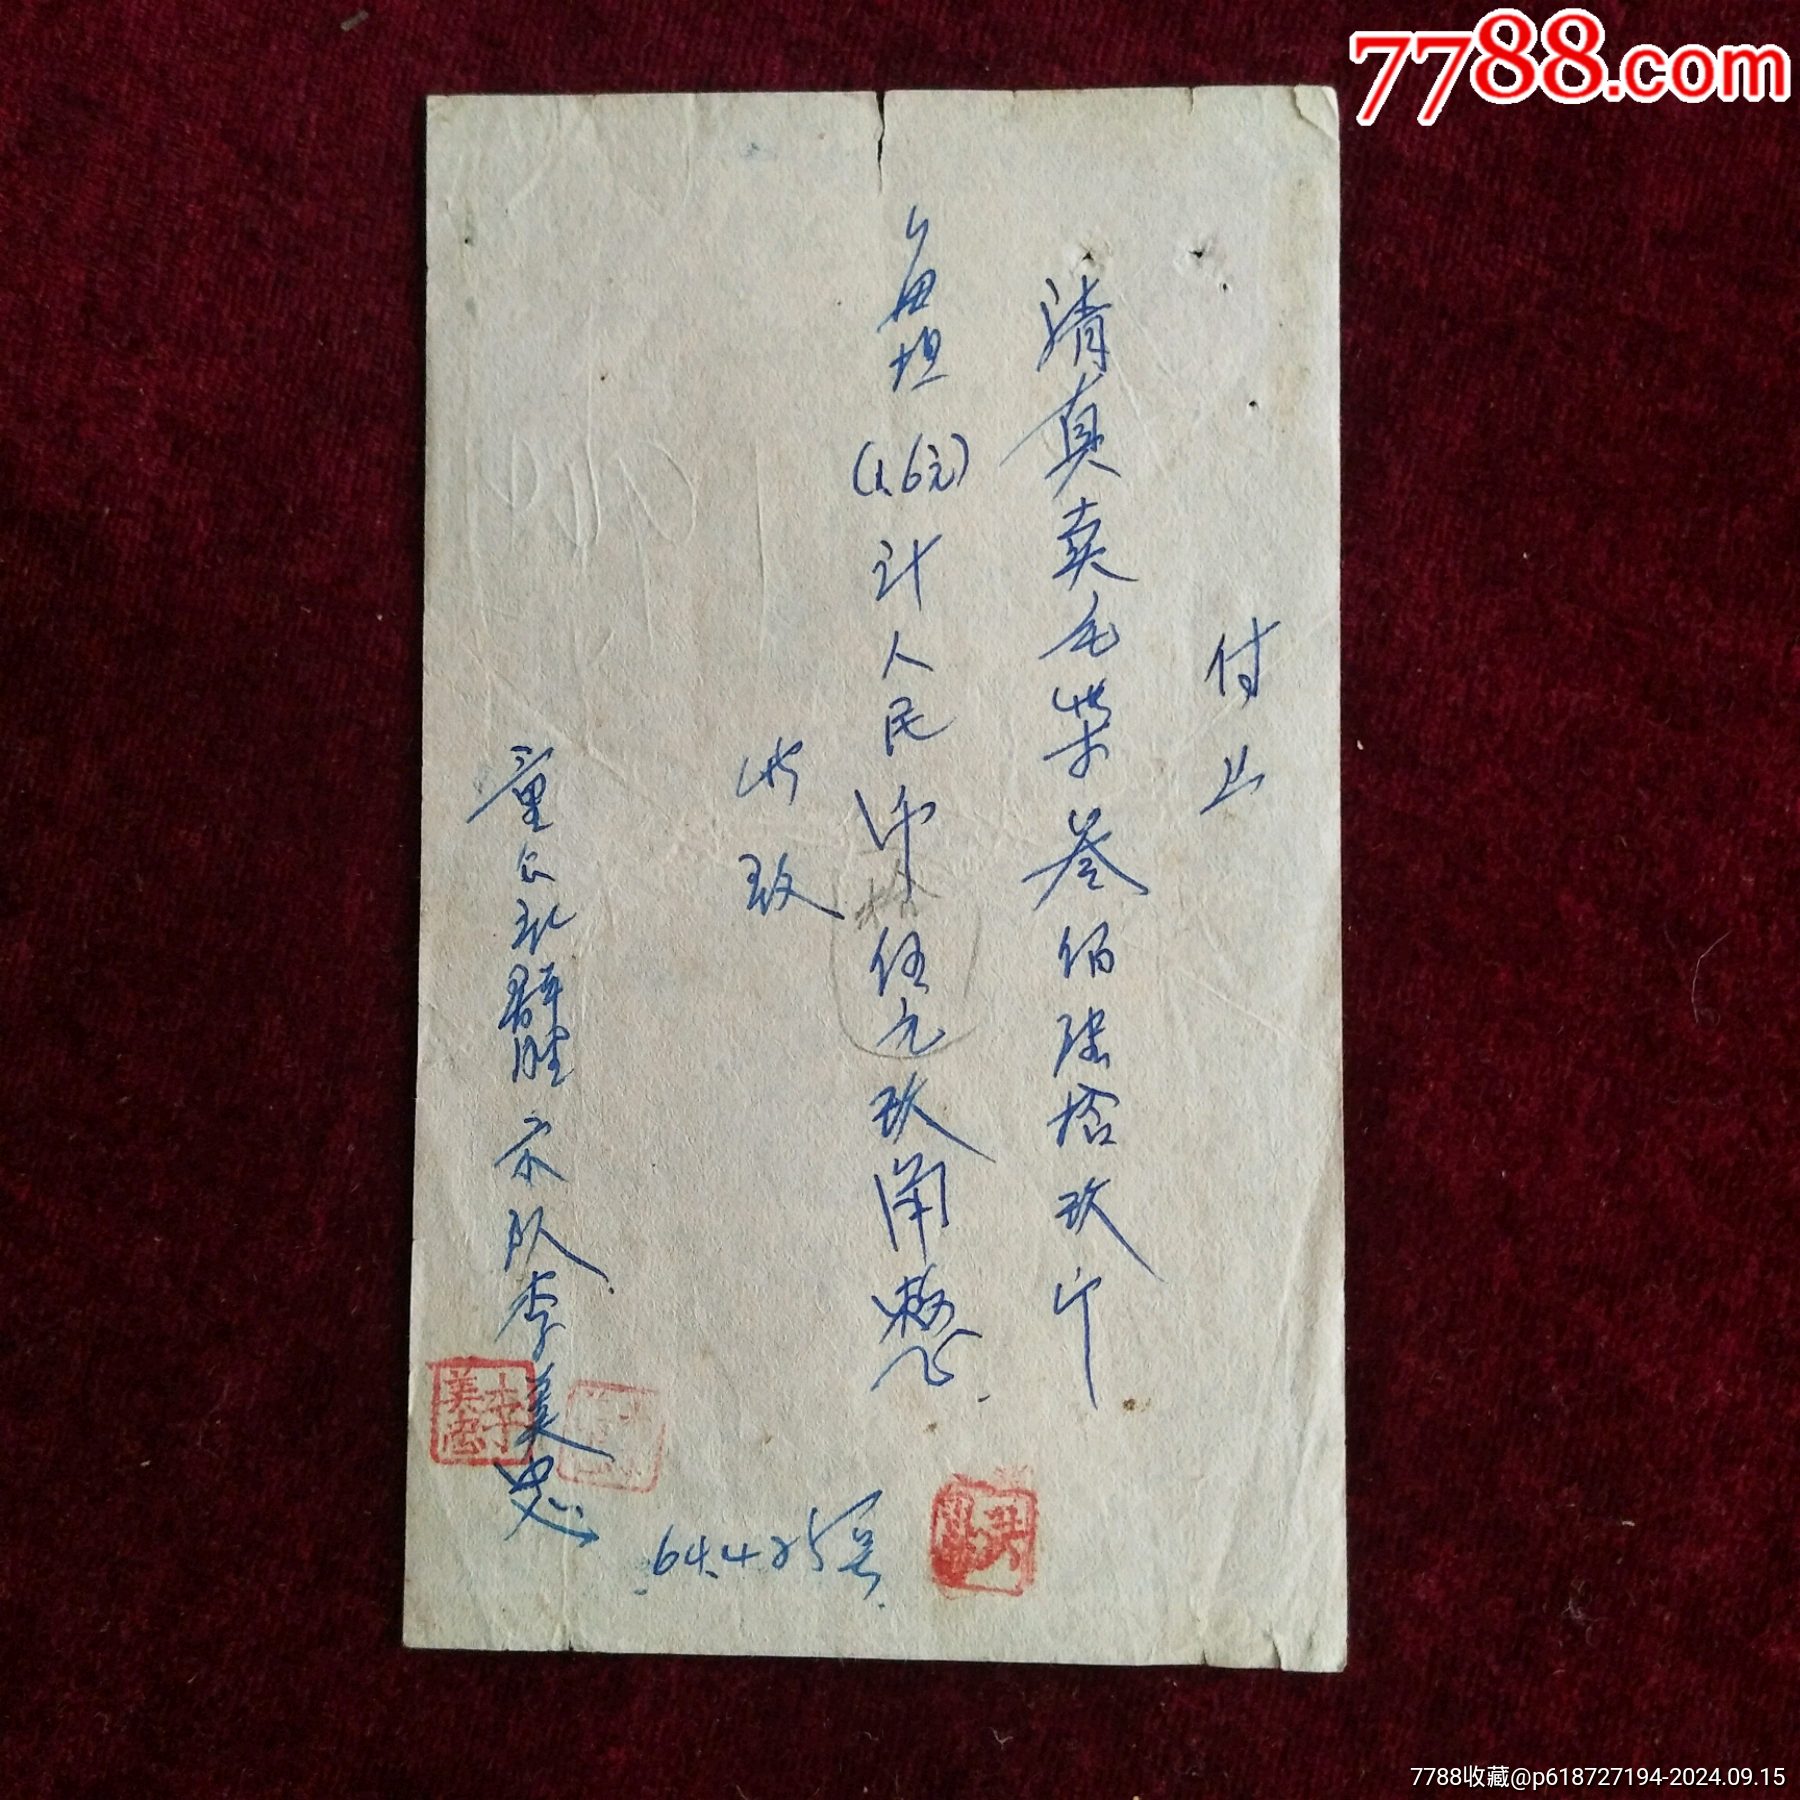 7788.com
付上
清真卖毛柴叁佰陆拾玖斤
每担(1.6元)计人民币伍元玖角整
拾
此致
童公社群胜 队李美忠
64.4.25号
李美忠
洪
7788收藏@p618727194-2024.09.15